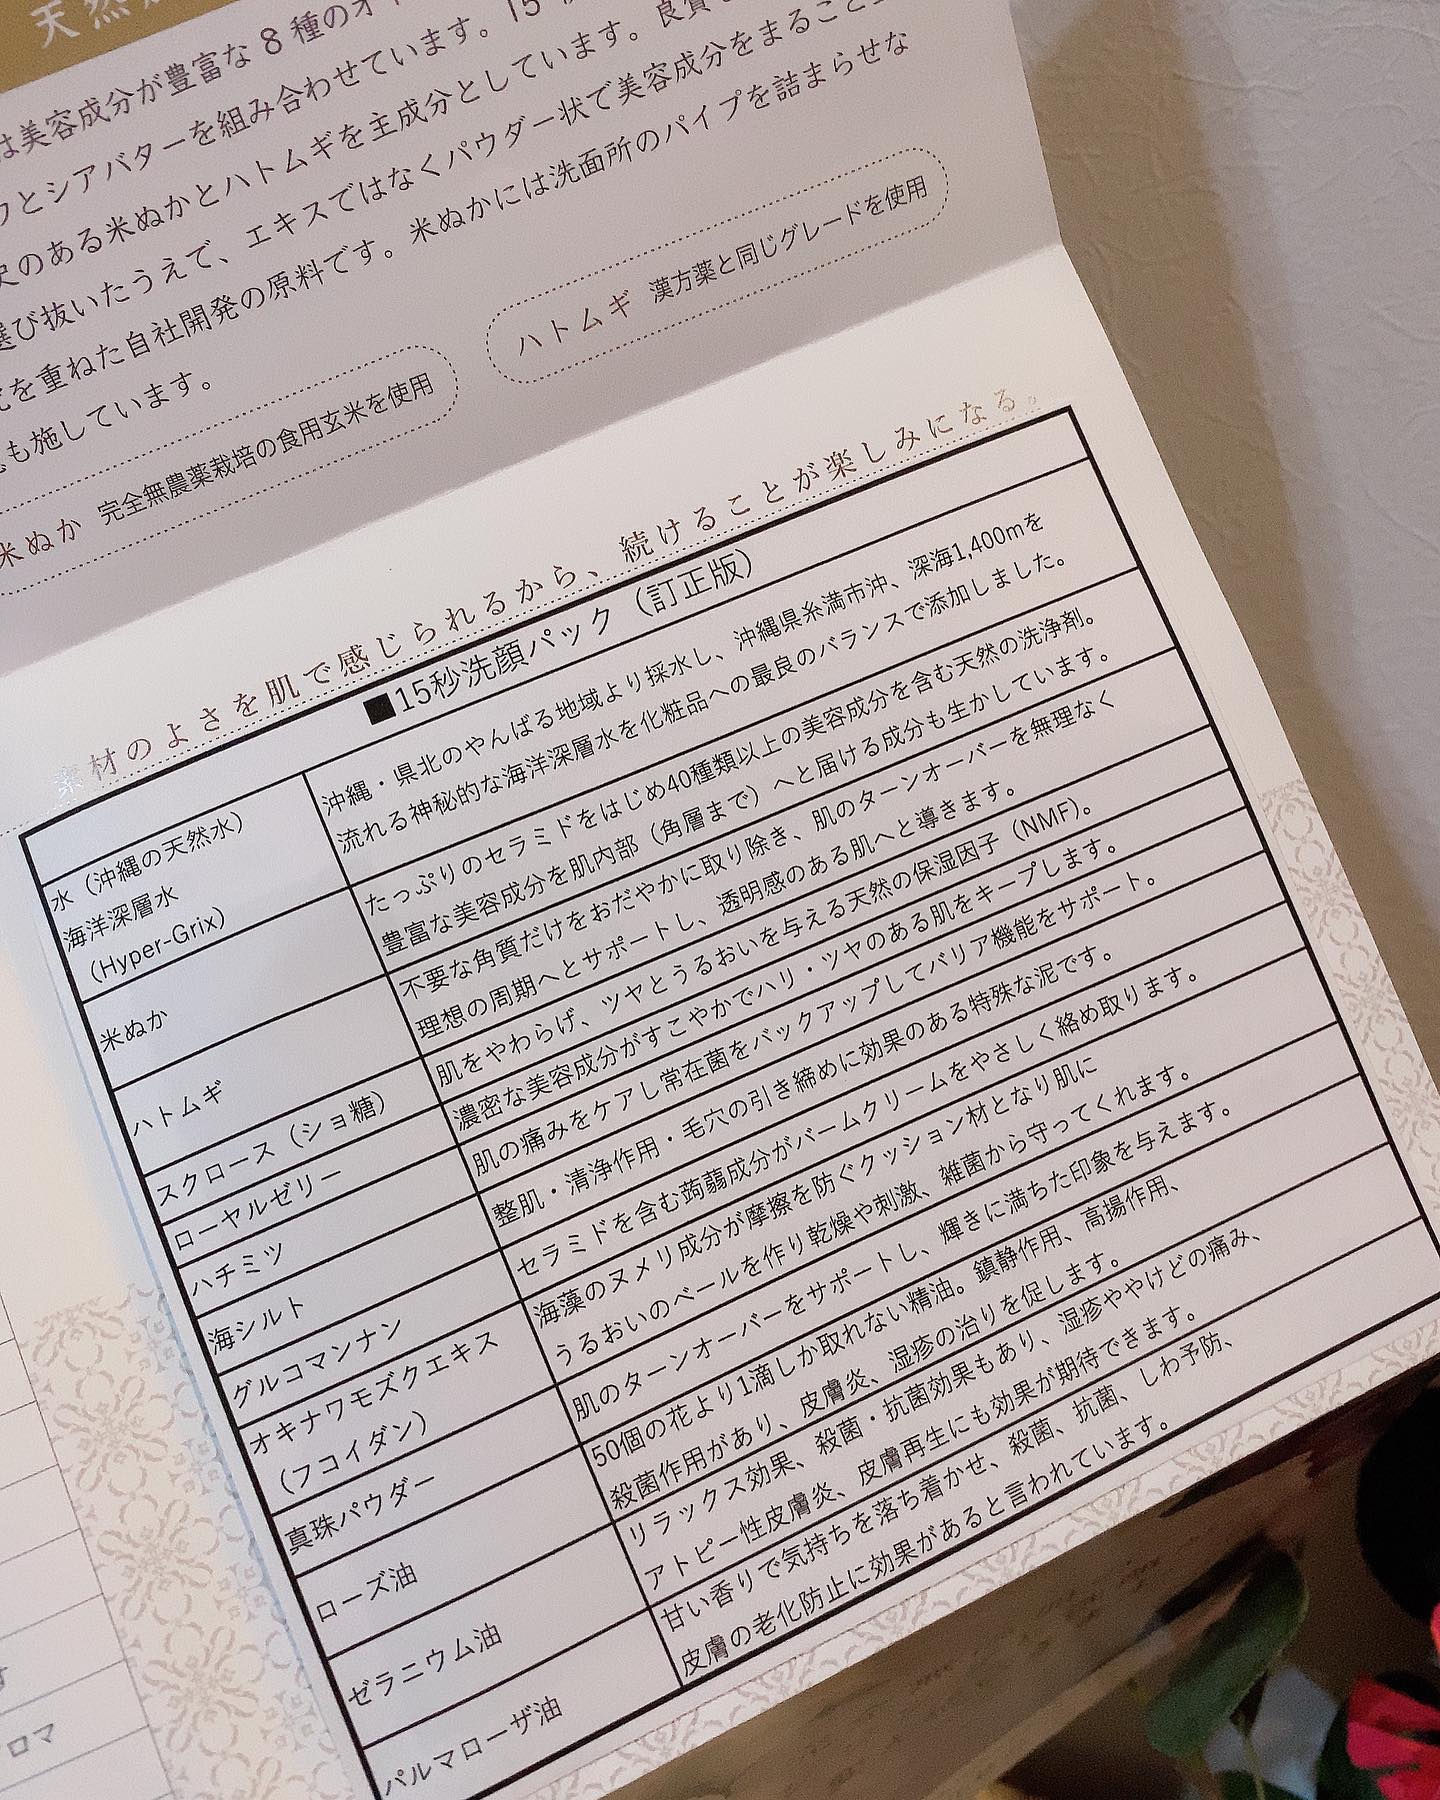 天然
は美容成分が豊富な8種のオイ
とシアバターを組み合わせています。15
のある米ぬかとハトムギを主成分としています。良質
選び抜いたうえで、エキスではなくパウダー状で美容成分をまるごと
を重ねた自社開発の原料です。米ぬかには洗面所のパイプを詰まらせな
も施しています。
米ぬか 完全無農薬栽培の食用玄米を使用
ハトムギ 漢方薬と同じグレードを使用
素材のよさを肌で感じられるから、続けることが楽しみになる。
■15秒洗顔パック（訂正版）
水（沖縄の天然水）
海洋深層水
（Hyper-Grix）
沖縄・県北のやんばる地域より採水し、沖縄県糸満市沖、深海1,400mを
流れる神秘的な海洋深層水を化粧品への最良のバランスで添加しました。
米ぬか
たっぷりのセラミドをはじめ40種類以上の美容成分を含む天然の洗浄剤。
豊富な美容成分を肌内部（角層まで）へと届ける成分も生かしています。
ハトムギ
不要な角質だけをおだやかに取り除き、肌のターンオーバーを無理なく
理想の周期へとサポートし、透明感のある肌へと導きます。
スクロース（ショ糖）
肌をやわらげ、ツヤとうるおいを与える天然の保湿因子（NMF）。
ローヤルゼリー
濃密な美容成分がすこやかでハリ・ツヤのある肌をキープします。
ハチミツ
肌の痛みをケアし常在菌をバックアップしてバリア機能をサポート。
海シルト
整肌・清浄作用・毛穴の引き締めに効果のある特殊な泥です。
グルコマンナン
セラミドを含む蒟蒻成分がバームクリームをやさしく絡め取ります。
オキナワモズクエキス
（フコイダン）
海藻のヌメリ成分が摩擦を防ぐクッション材となり肌に
うるおいのベールを作り乾燥や刺激、雑菌から守ってくれます。
真珠パウダー
肌のターンオーバーをサポートし、輝きに満ちた印象を与えます。
ローズ油
50個の花より1滴しか取れない精油。鎮静作用、高揚作用、
殺菌作用があり、皮膚炎、湿疹の治りを促します。
ゼラニウム油
リラックス効果、殺菌・抗菌効果もあり、湿疹ややけどの痛み、
アトピー性皮膚炎、皮膚再生にも効果が期待できます。
パルマローザ油
甘い香りで気持ちを落ち着かせ、殺菌、抗菌、しわ予防、
皮膚の老化防止に効果があると言われています。
ロマ